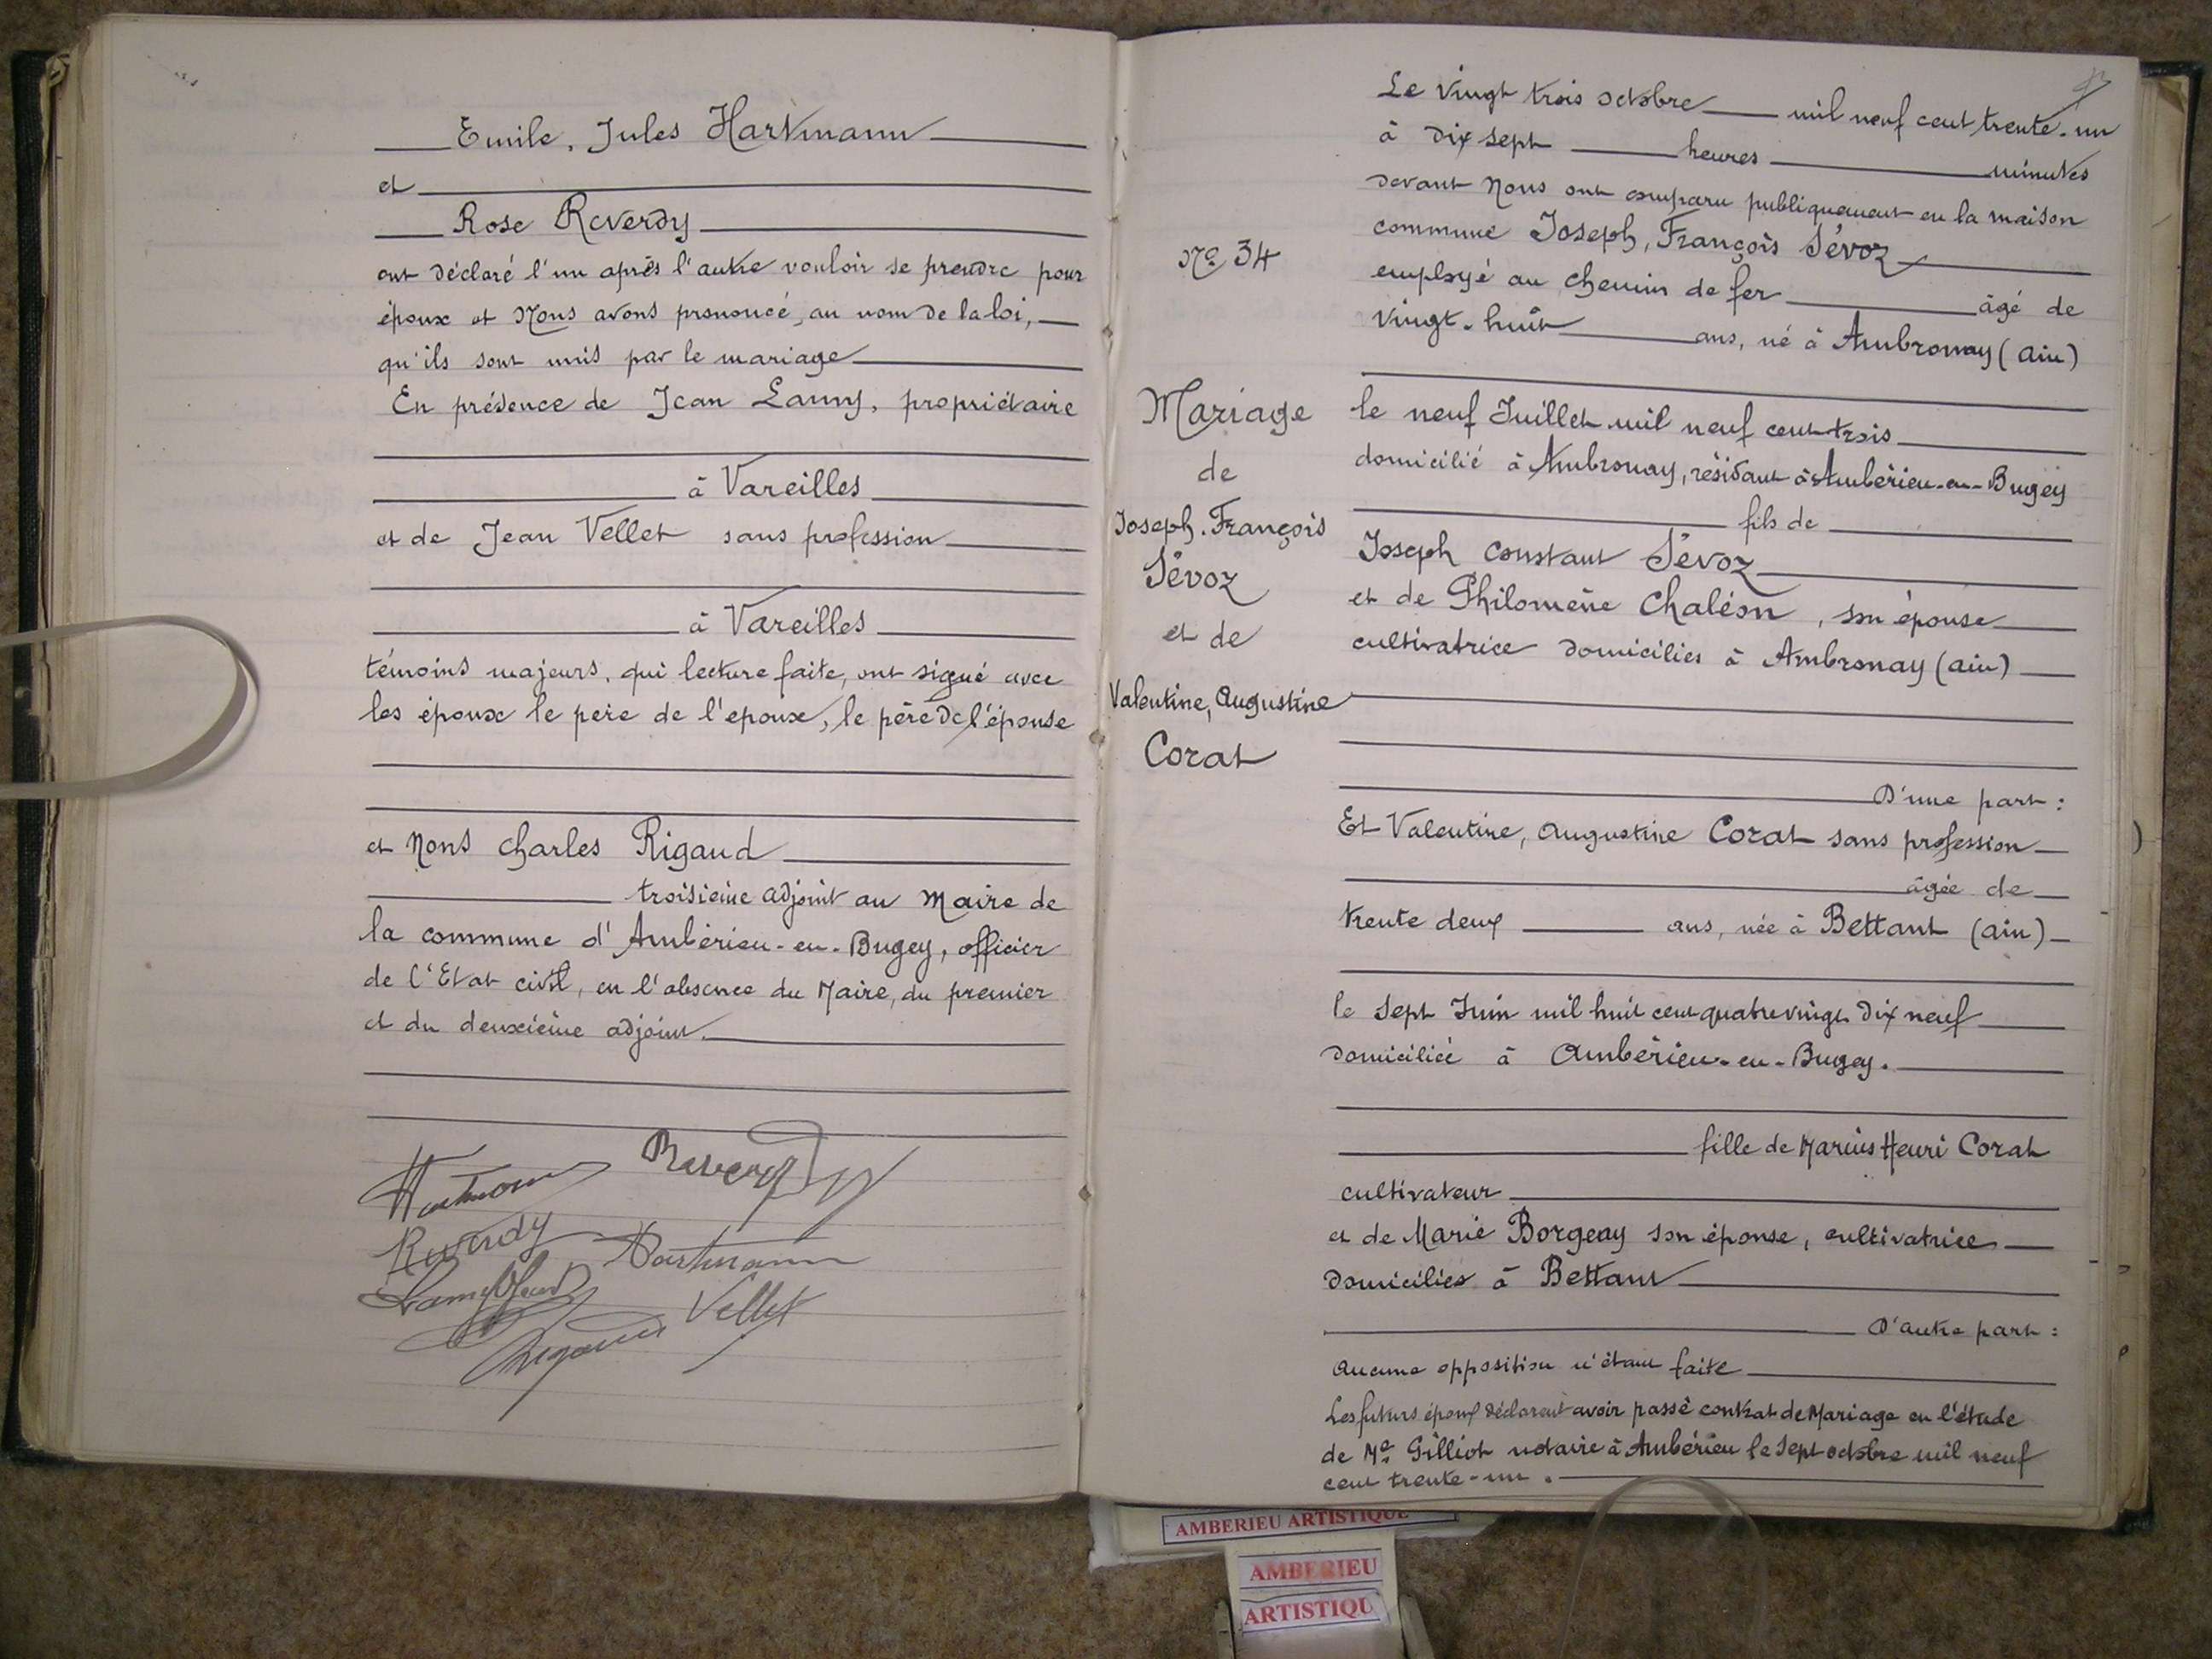 Emile, Jules Hartmann
et
Rose Reverdy
ont déclaré l'un après l'autre vouloir se prendre pour
époux et Nous avons prononcé, au nom de la loi,
qu'ils sont unis par le mariage
En présence de Jean Lamy, propriétaire
à Vareilles
et de Jean Vellet sans profession
à Vareilles
témoins majeurs, qui lecture faite, ont signé avec
les époux le père de l'époux, le père de l'épouse
et Nous Charles Rigaud
troisième adjoint au Maire de
la commune d'Ambérieu-en-Bugey, officier
de l'Etat civil, en l'absence du Maire, du premier
et du deuxième adjoint.
Hartmann Reverdy
Reverdy Hartmann
Lamy Jean Vellet
Rigaud
Le vingt trois octobre mil neuf cent trente-un
à dix sept heures minutes
devant Nous ont comparu publiquement en la maison
commune Joseph, François Sévoz
employé au chemin de fer âgé de
vingt-huit ans, né à Ambronay (ain)
le neuf Juillet mil neuf cent trois
domicilié à Ambronay, résidant à Ambérieu-en-Bugey
fils de
Joseph Constant Sévoz
et de Philomène Chaléon, son épouse
cultivatrice domiciliés à Ambronay (ain)
D'une part :
Et Valentine, Augustine Corat sans profession
âgée de
trente deux ans, née à Bettant (ain)
le sept Juin mil huit cent quatre vingt dix neuf
domiciliée à Ambérieu-en-Bugey.
fille de Marius Henri Corat
cultivateur
et de Marie Borgeay son épouse, cultivatrice
domiciliés à Bettant
D'autre part :
Aucune opposition n'étant faite
Les futurs époux déclarent avoir passé contrat de Mariage en l'étude
de Me Gilliot notaire à Ambérieu le sept octobre mil neuf
cent trente-un.
No 34
Mariage
de
Joseph. François
Sévoz
et de
Valentine, Augustine
Corat
AMBERIEU ARTISTIQUE
AMBERIEU
ARTISTIQU